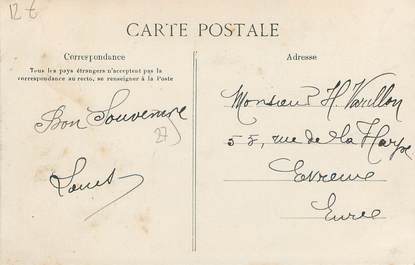 12 €
CARTE POSTALE
Correspondance
Tous les pays étrangers n'acceptent pas la
correspondance au recto, se renseigner à la Poste
Bon Souvenir
27
Louis
Adresse
Monsieur H. Varillon
58, rue de la Harpe
Evreux
Eure